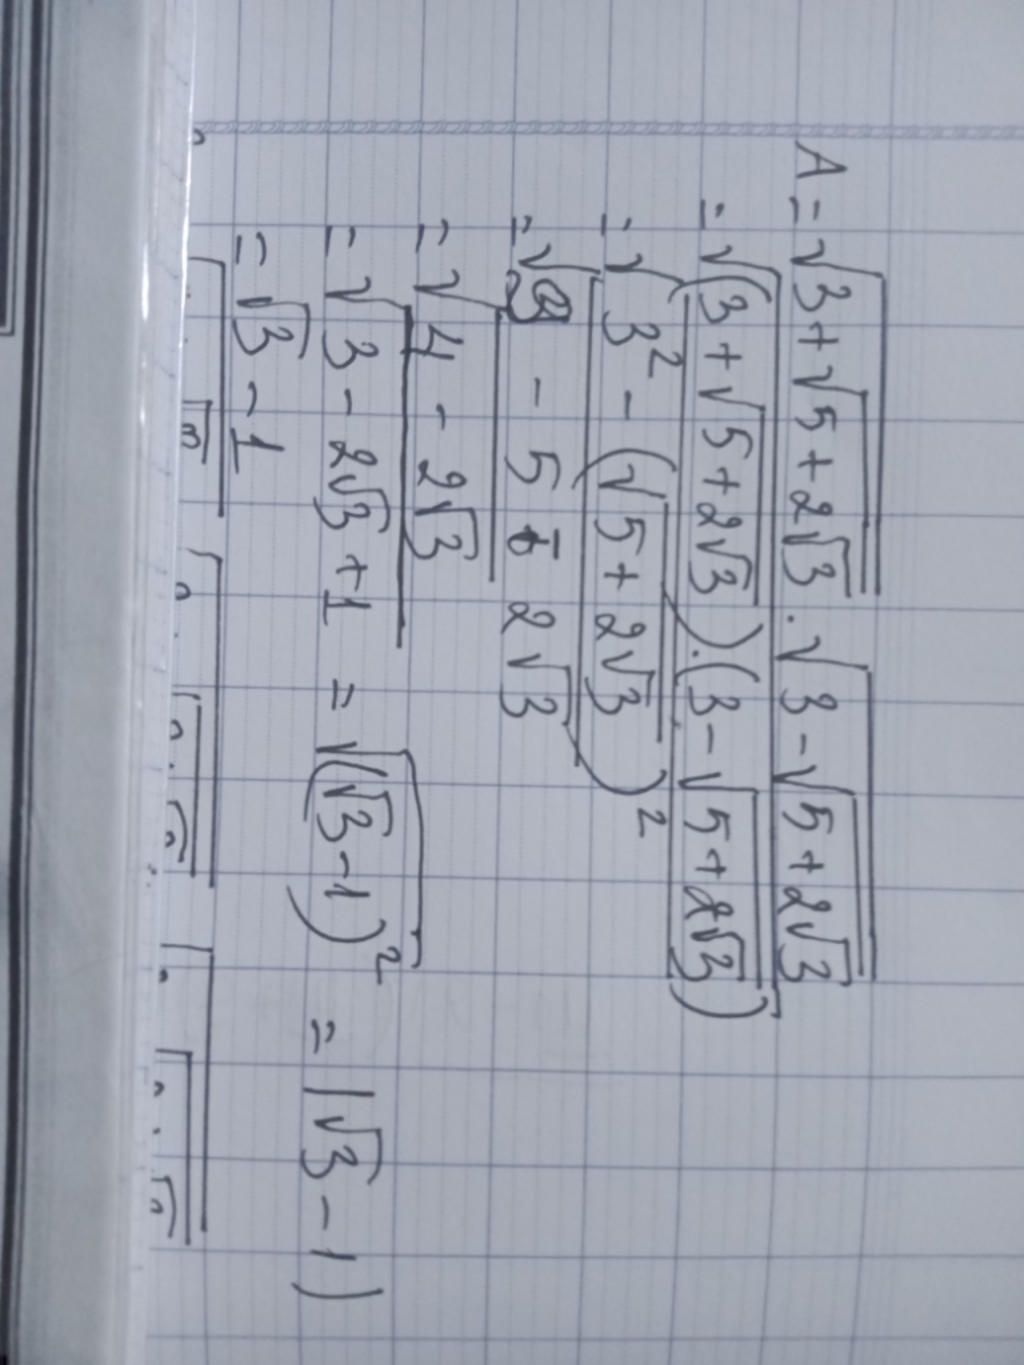 A = √(3+√(5+2√3)) . √(3-√(5+2√3))
= √((3+√(5+2√3)).(3-√(5+2√3)))
= √(3² - (√(5+2√3))²)
= √(9 - 5 - 2√3)
= √(4 - 2√3)
= √(3 - 2√3 + 1) = √((√3-1)²) = |√3-1|
= √3 - 1